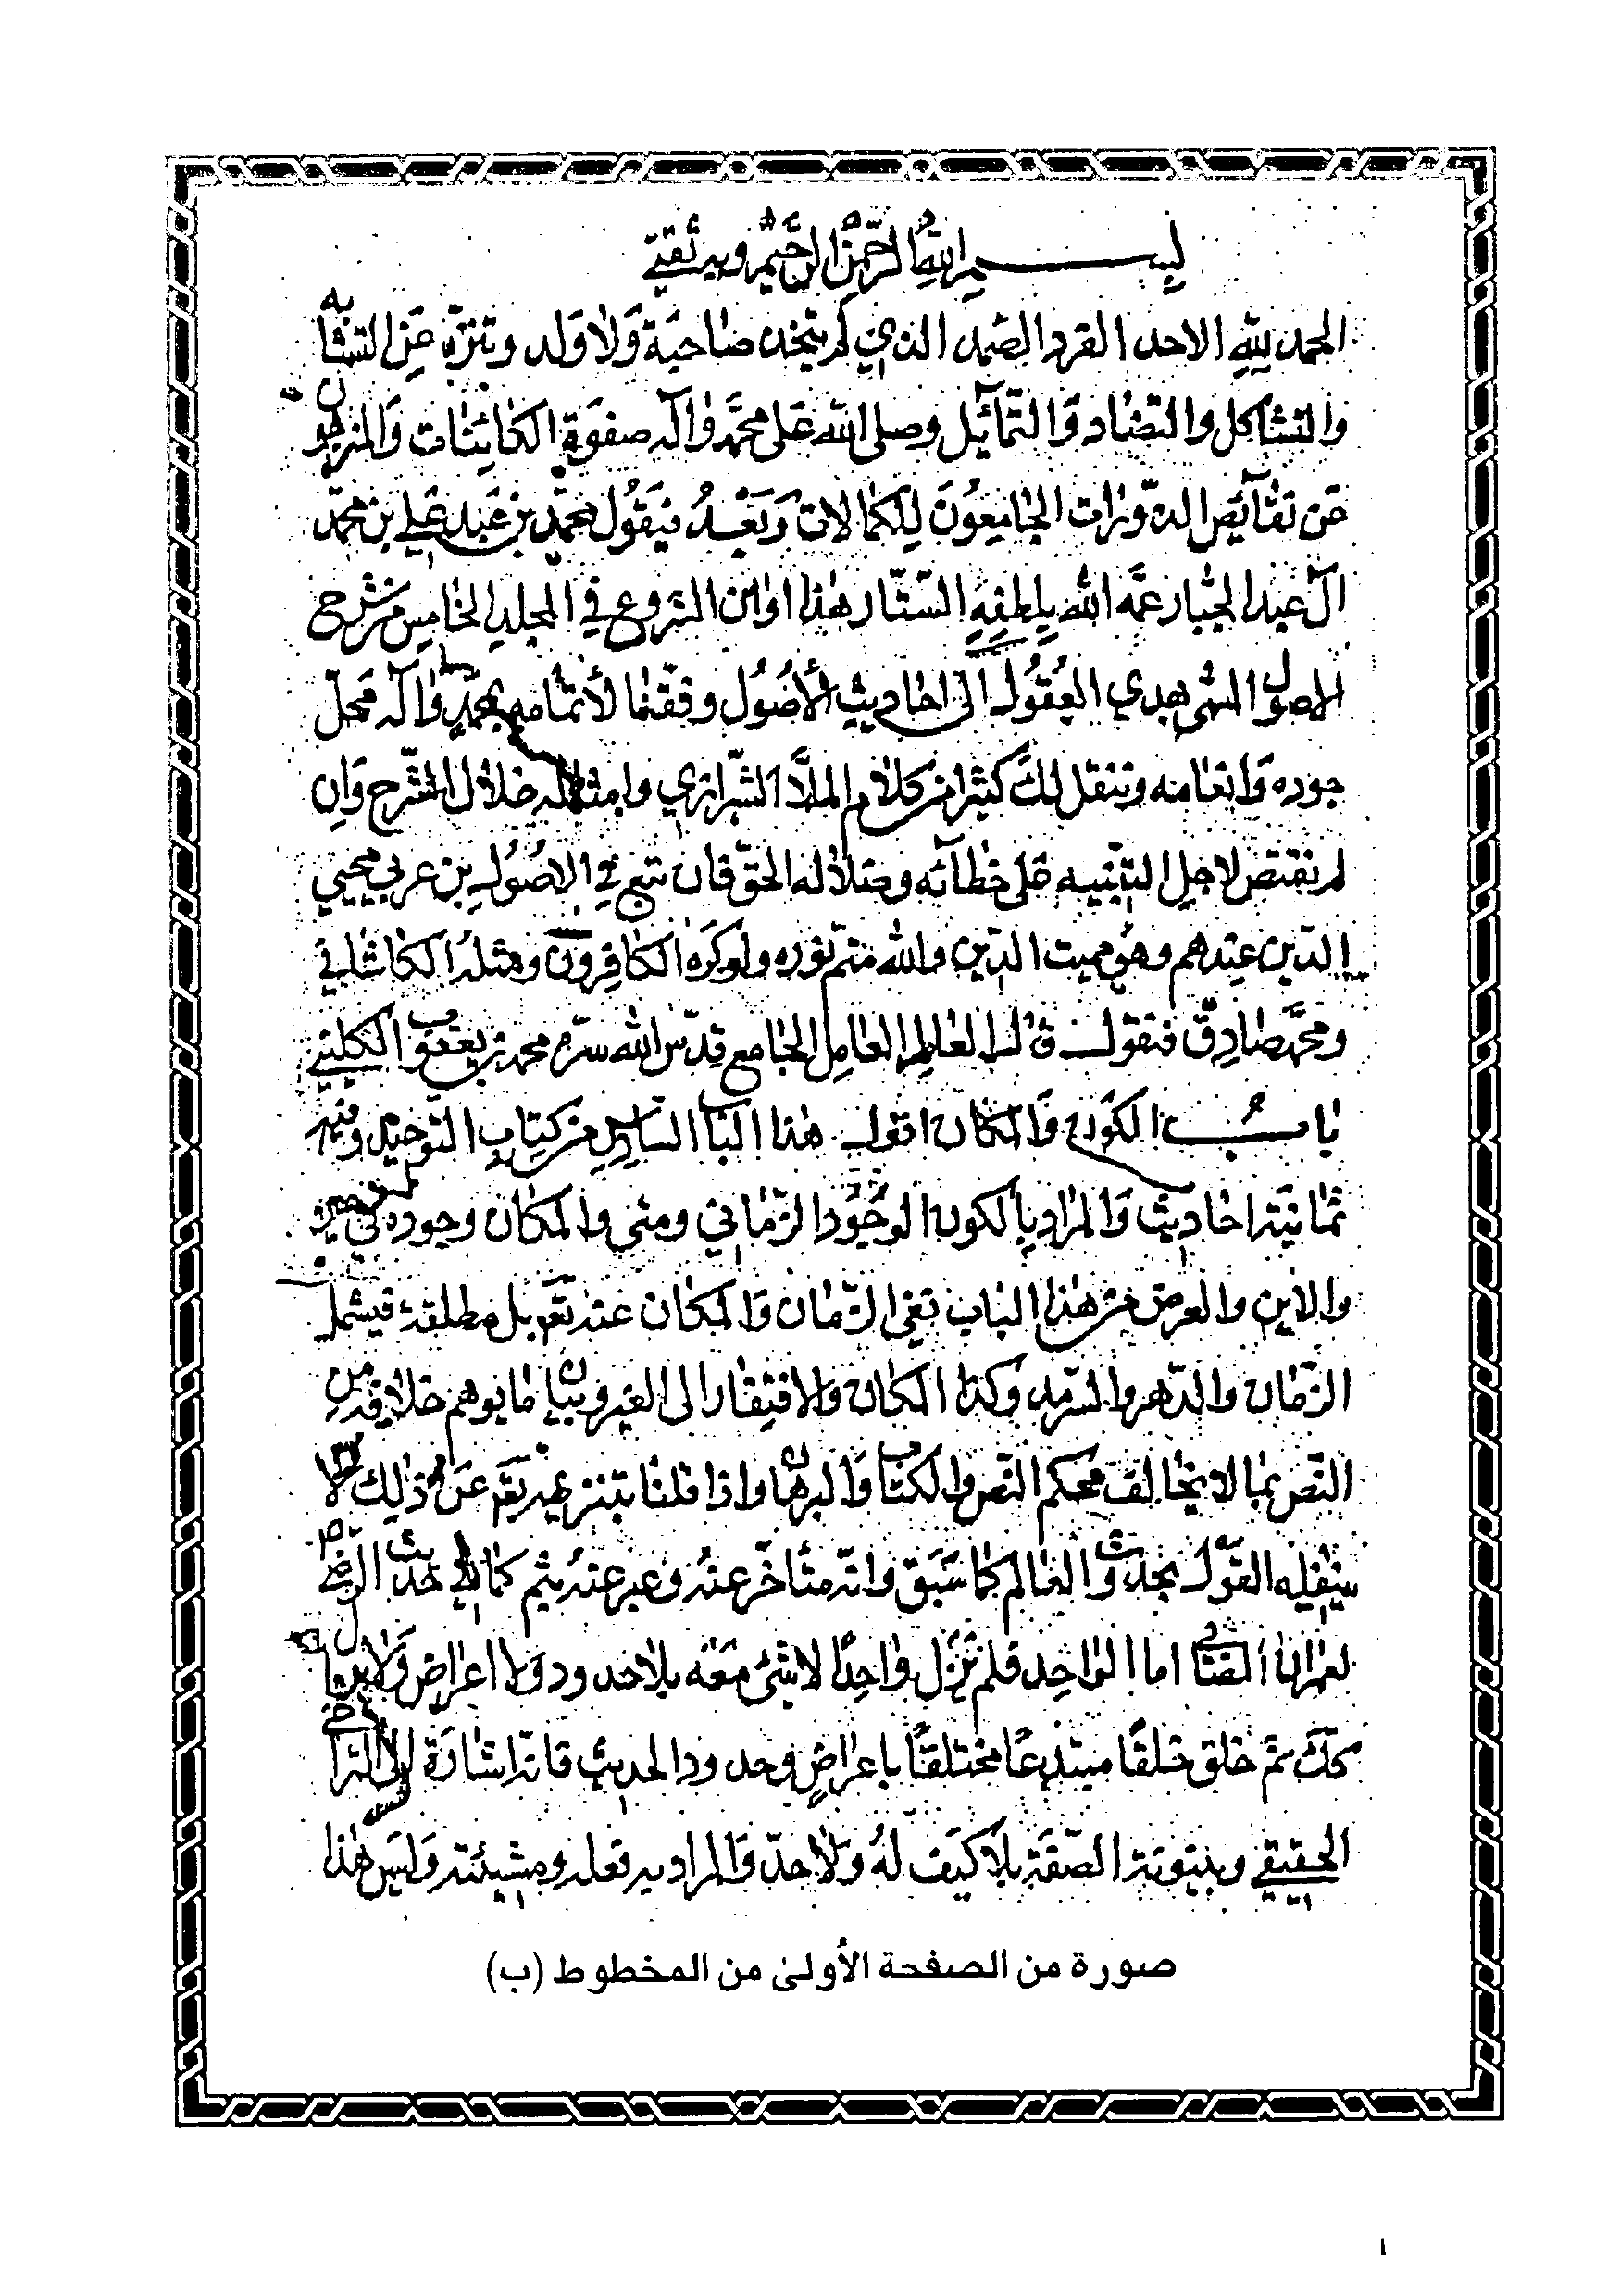 بسم الله الرحمن الرحيم وبه ثقتي
الحمد لله الاحد الفرد الصمد الذي لم يتخذ صاحبة ولا ولد وتنزه عن التشابه
والتشاكل والتضاد والتماثل وصلى الله على محمد وآله صفوة الكائنات والمنزهون
عن نقائص الدورات الجامعون للكمالات وبعد فيقول محمد بن عبد علي بن محمد
آل عبد الجبار عمه الله بلطفه الستار هذا اوان الشروع في المجلد الخامس من شرح
الاصول المسمى هدي العقول الى احاديث الأصول وفقنا لأتمامه بمحمد وآله محل
جوده وانعامه وننقل لك كثيرا من كلام الملا الشيرازي وامثاله خلال الشرح وان
لم نقتض لاجل التنبيه على خطائه وضلاله الحق فان تتبع في الاصول بن عربي محيي
الدين عندهم وهو مميت الدين والله متم نوره ولو كره الكافرون ومثله الكاشاني
ومحمد صادق فنقول قال العالم العامل الجامع قدس الله سره محمد بن يعقوب الكليني
باب الكون والمكان اقول هذا الباب السادس من كتاب التوحيد وفيه
ثمانية احاديث والمراد بالكون الوجود الزماني ومتى والمكان وجوده في حيز
والاين والغرض من هذا الباب نفي الزمان والمكان عنه تع بل مطلقه فيشمل
الزمان والدهر والسرمد وكذا المكان والافتقار الى الغير وبيان ما يوهم خلافه من
النص بما لا يخالف محكم النص والكتاب والبرهان واذا قلنا بتنزيهه تع عن ذلك لا
ينفيه القول بحدوث العالم كما سبق وانه متأخر عنه وعبر عنه بثم كما في حديث الرضا
لعمران الصابي اما الواحد فلم يزل واحدا لا شئ معه بلا حدود ولا اعراض ولا يزال
كذلك ثم خلق خلقا مبتدعا مختلفا باعراض وحدود الحديث فانه اشارة الى التراخي
الحقيقي وبينونة الصفة بلا كيف له ولا حد والمراد به فعله ومشيئته وليس هذا
صورة من الصفحة الأولى من المخطوط (ب)